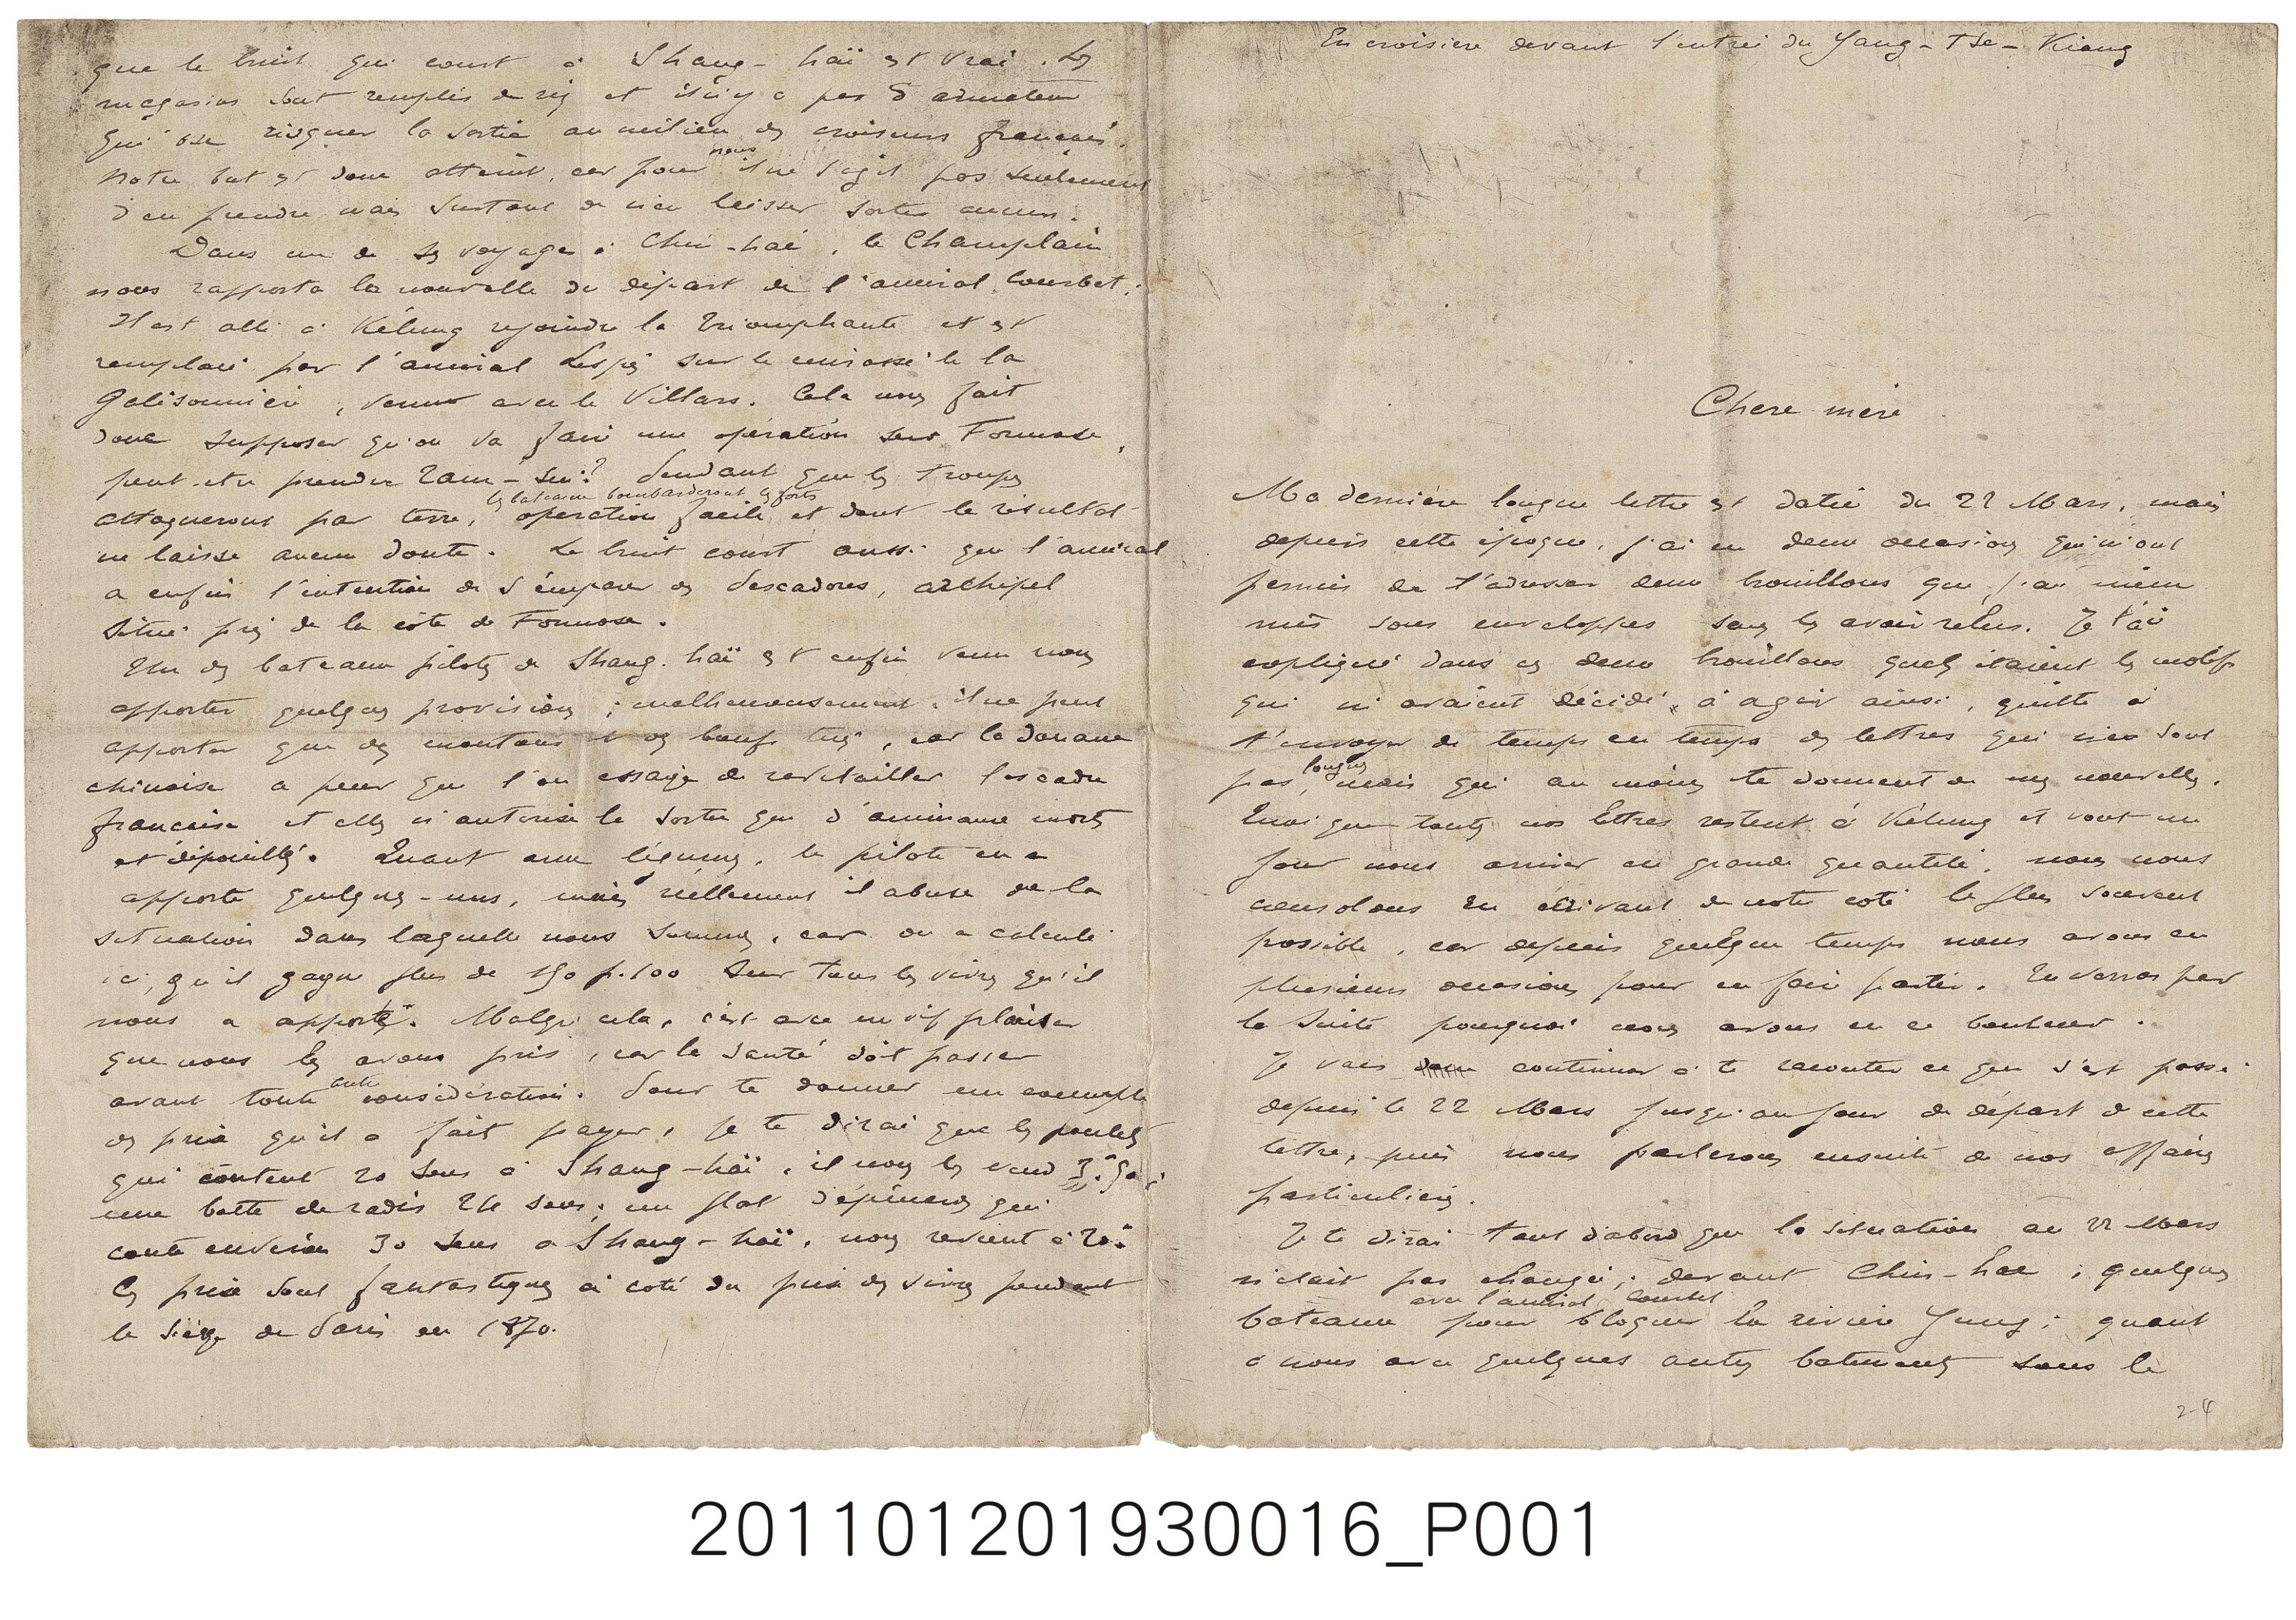 En croisière devant l'entrée du Yang-Tse-Kiang
Chère mère
Ma dernière longue lettre est datée du 22 Mars, mais
depuis cette époque, j'ai eu deux occasions qui m'ont
permis de t'adresser deux brouillons que j'ai même
mis sous enveloppes sans les avoir relus. Je t'ai
expliqué dans ces deux brouillons quels étaient les motifs
qui m'avaient décidé à agir ainsi, quitte à
t'envoyer de temps en temps des lettres qui ne sont
pas longues, mais qui au moins te donnent de mes nouvelles.
Quoique toutes nos lettres restent à Kélung et vont un
jour nous arriver en grande quantité, nous nous
consolons en écrivant de notre coté le plus souvent
possible, car depuis quelque temps nous avons eu
plusieurs occasions pour en faire partir. Tu verras par
la suite pourquoi nous avons eu ce bonheur.
Je vais continuer à te raconter ce qui s'est passé
depuis le 22 Mars jusqu'au jour du départ de cette
lettre, puis nous parlerons ensuite de nos affaires
particulières.
Je te dirai tout d'abord que la situation au 22 Mars
n'était pas changée; devant Chin-hae; quelques
bateaux avec l'amiral Courbet pour bloquer la rivière Yung; quant
à nous avec quelques autres batiments sous le
2-4
que le bruit qui court à Shang-haï est vrai. Les
magasins sont remplis de riz et il n'y a pas d'armateur
qui ose risquer la sortie au milieu des croiseurs français.
Notre but est donc atteint, car pour nous il ne s'agit pas seulement
d'en prendre mais surtout de n'en laisser sortir aucun.
Dans un de ses voyages à Chin-haé, le Champlain
nous rapporta la nouvelle du départ de l'amiral Courbet;
Il est allé à Kélung rejoindre la Triomphante et est
remplacé par l'amiral Lespès sur le cuirassé le la
Galissonnière, venu avec le Villars. Cela nous fait
donc supposer qu'on va faire une opération sur Formose,
peut-être prendre Tam-Sui? Pendant que les troupes
attaqueront par terre, les bateaux bombarderont les forts, opération facile, et dont le résultat
ne laisse aucun doute. Le bruit court aussi que l'amiral
a enfin l'intention de s'emparer des Pescadores, archipel
situé près de la côte de Formose.
Un des bateaux pilotes de Shang-haï est enfin venu nous
apporter quelques provisions; malheureusement, il ne peut
apporter que des moutons et des boeufs tués, car la douane
chinoise a peur que l'on essaye de ravitailler l'escadre
française et elle n'autorise la sortie que d'animaux morts
et dépouillés. Quant aux légumes, le pilote en a
apporté quelques-uns, mais réellement il abuse de la
situation dans laquelle nous sommes, car on a calculé
ici, qu'il gagne plus de 150 p. 100 sur tous les vivres qu'il
nous a apportés. Malgré cela, c'est avec un vif plaisir
que nous les avons pris, car la santé doit passer
avant toute autre considération. Pour te donner un exemple
des prix qu'il a fait payer, je te dirai que les poulets
qui coûtent 20 sous à Shang-haï, il nous les vend
une botte de radis 24 sous; un plat d'épinards qui
coute environ 30 sous à Shang-haï, nous revient à
Ces prix sont fantastiques à coté du prix des vivres pendant
le siège de Paris en 1870.
201101201930016_P001